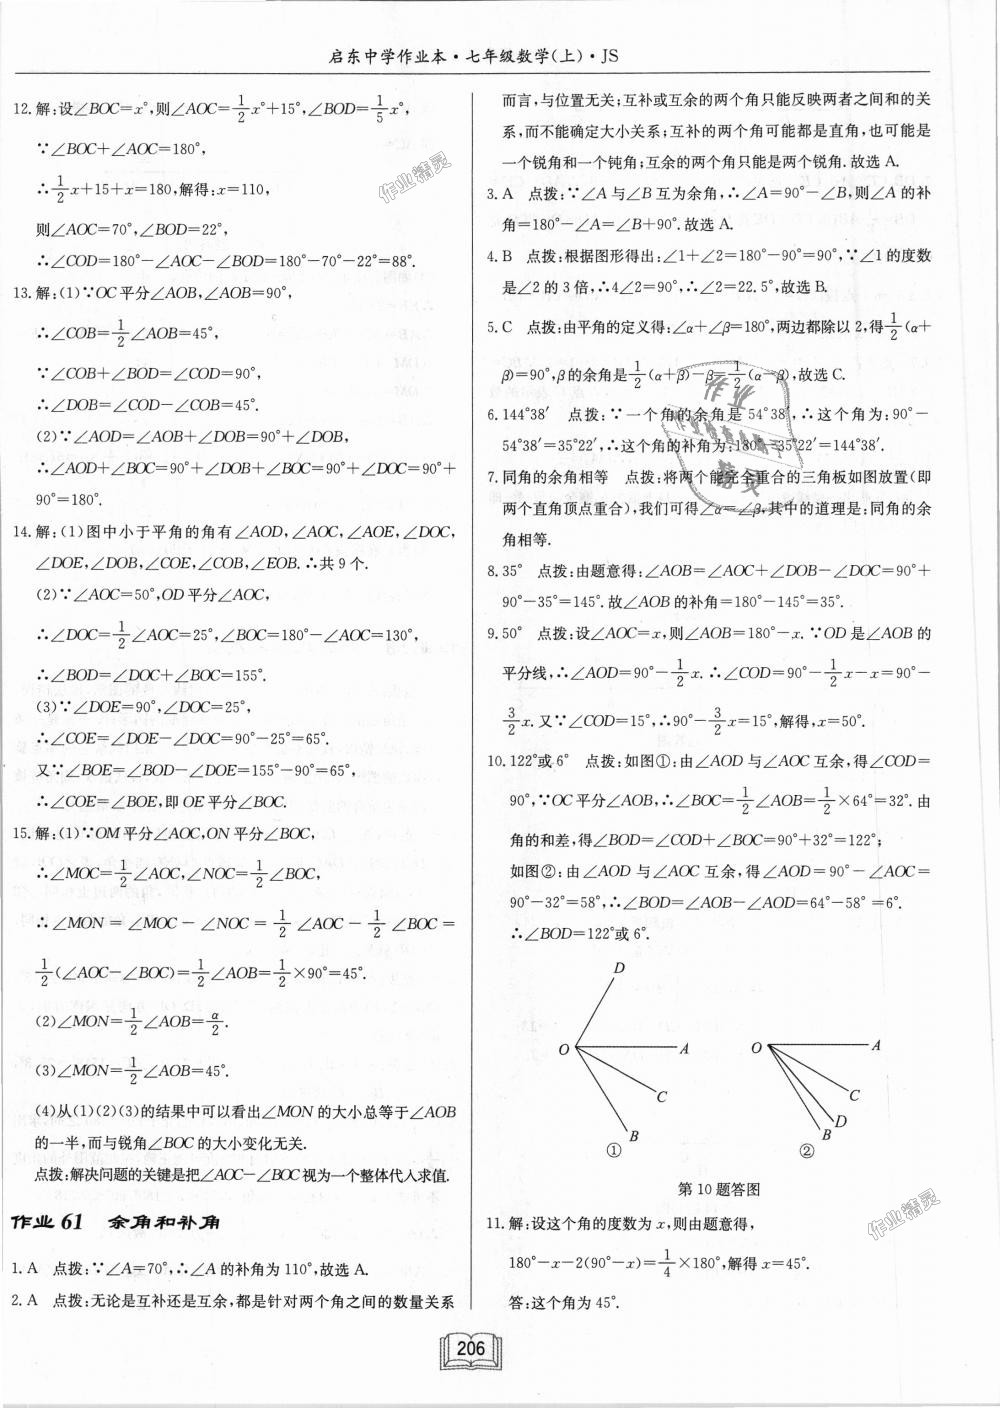 启东中学作业本·七年级数学(上)·JS
12.解:设∠BOC=x°,则∠AOC=1/2x°+15°,∠BOD=1/5x°,
∵∠BOC+∠AOC=180°,
∴1/2x+15+x=180,解得:x=110,
则∠AOC=70°,∠BOD=22°,
∴∠COD=180°-∠AOC-∠BOD=180°-70°-22°=88°.
13.解:(1)∵OC平分∠AOB,∠AOB=90°,
∴∠COB=1/2∠AOB=45°,
∵∠COB+∠BOD=∠COD=90°,
∴∠DOB=∠COD-∠COB=45°.
(2)∵∠AOD=∠AOB+∠DOB=90°+∠DOB,
∴∠AOD+∠BOC=90°+∠DOB+∠BOC=90°+∠COD=90°+
90°=180°.
14.解:(1)图中小于平角的角有∠AOD,∠AOC,∠AOE,∠DOC,
∠DOE,∠DOB,∠COE,∠COB,∠EOB.∴共9个.
(2)∵∠AOC=50°,OD平分∠AOC,
∴∠DOC=1/2∠AOC=25°,∠BOC=180°-∠AOC=130°,
∴∠BOD=∠DOC+∠BOC=155°.
(3)∵∠DOE=90°,∠DOC=25°,
∴∠COE=∠DOE-∠DOC=90°-25°=65°.
又∵∠BOE=∠BOD-∠DOE=155°-90°=65°,
∴∠COE=∠BOE,即OE平分∠BOC.
15.解:(1)∵OM平分∠AOC,ON平分∠BOC,
∴∠MOC=1/2∠AOC,∠NOC=1/2∠BOC,
∴∠MON=∠MOC-∠NOC=1/2∠AOC-1/2∠BOC=
1/2(∠AOC-∠BOC)=1/2∠AOB=1/2×90°=45°.
(2)∠MON=1/2∠AOB=α/2.
(3)∠MON=1/2∠AOB=45°.
(4)从(1)(2)(3)的结果中可以看出∠MON的大小总等于∠AOB
的一半,而与锐角∠BOC的大小变化无关.
点拨:解决问题的关键是把∠AOC-∠BOC视为一个整体代人求值.
作业61 余角和补角
1.A 点拨:∵∠A=70°,∴∠A的补角为110°,故选A.
2.A 点拨:无论是互补还是互余,都是针对两个角之间的数量关系
而言,与位置无关;互补或互余的两个角只能反映两者之间和的关
系,而不能确定大小关系;互补的两个角可能都是直角,也可能是
一个锐角和一个钝角;互余的两个角只能是两个锐角.故选A.
3.A 点拨:∵∠A与∠B互为余角,∴∠A=90°-∠B,则∠A的补
角=180°-∠A=∠B+90°.故选A.
4.B 点拨:根据图形得出:∠1+∠2=180°-90°=90°,∵∠1的度数
是∠2的3倍,∴4∠2=90°,∴∠2=22.5°,故选B.
5.C 点拨:由平角的定义得:∠α+∠β=180°,两边都除以2,得1/2(α+
β)=90°,β的余角是1/2(α+β)-β=1/2(α-β),故选C.
6.144°38′ 点拨:∵一个角的余角是54°38′,∴这个角为:90°-
54°38′=35°22′,∴这个角的补角为:180°-35°22′=144°38′.
7.同角的余角相等 点拨:将两个能完全重合的三角板如图放置(即
两个直角顶点重合),我们可得∠α=∠β,其中的道理是:同角的余
角相等.
8.35° 点拨:由题意得:∠AOB=∠AOC+∠DOB-∠DOC=90°+
90°-35°=145°.故∠AOB的补角=180°-145°=35°.
9.50° 点拨:设∠AOC=x,则∠AOB=180°-x.∵OD是∠AOB的
平分线,∴∠AOD=90°-1/2x.∴∠COD=90°-1/2x-x=90°-
3/2x.又∵∠COD=15°,∴90°-3/2x=15°,解得,x=50°.
10.122°或6° 点拨:如图①:由∠AOD与∠AOC互余,得∠COD=
90°,∵OC平分∠AOB,∴∠BOC=1/2∠AOB=1/2×64°=32°.由
角的和差,得∠BOD=∠COD+∠BOC=90°+32°=122°;
如图②:由∠AOD与∠AOC互余,得∠AOD=90°-∠AOC=
90°-32°=58°,∴∠BOD=∠AOB-∠AOD=64°-58°=6°.
∴∠BOD=122°或6°.
D
O
A
C
B
①
O
A
C
D
B
②
第10题答图
11.解:设这个角的度数为x,则由题意得,
180°-x-2(90°-x)=1/4×180°,解得x=45°.
答:这个角为45°.
206
作业精灵
作业精灵
作业
精灵